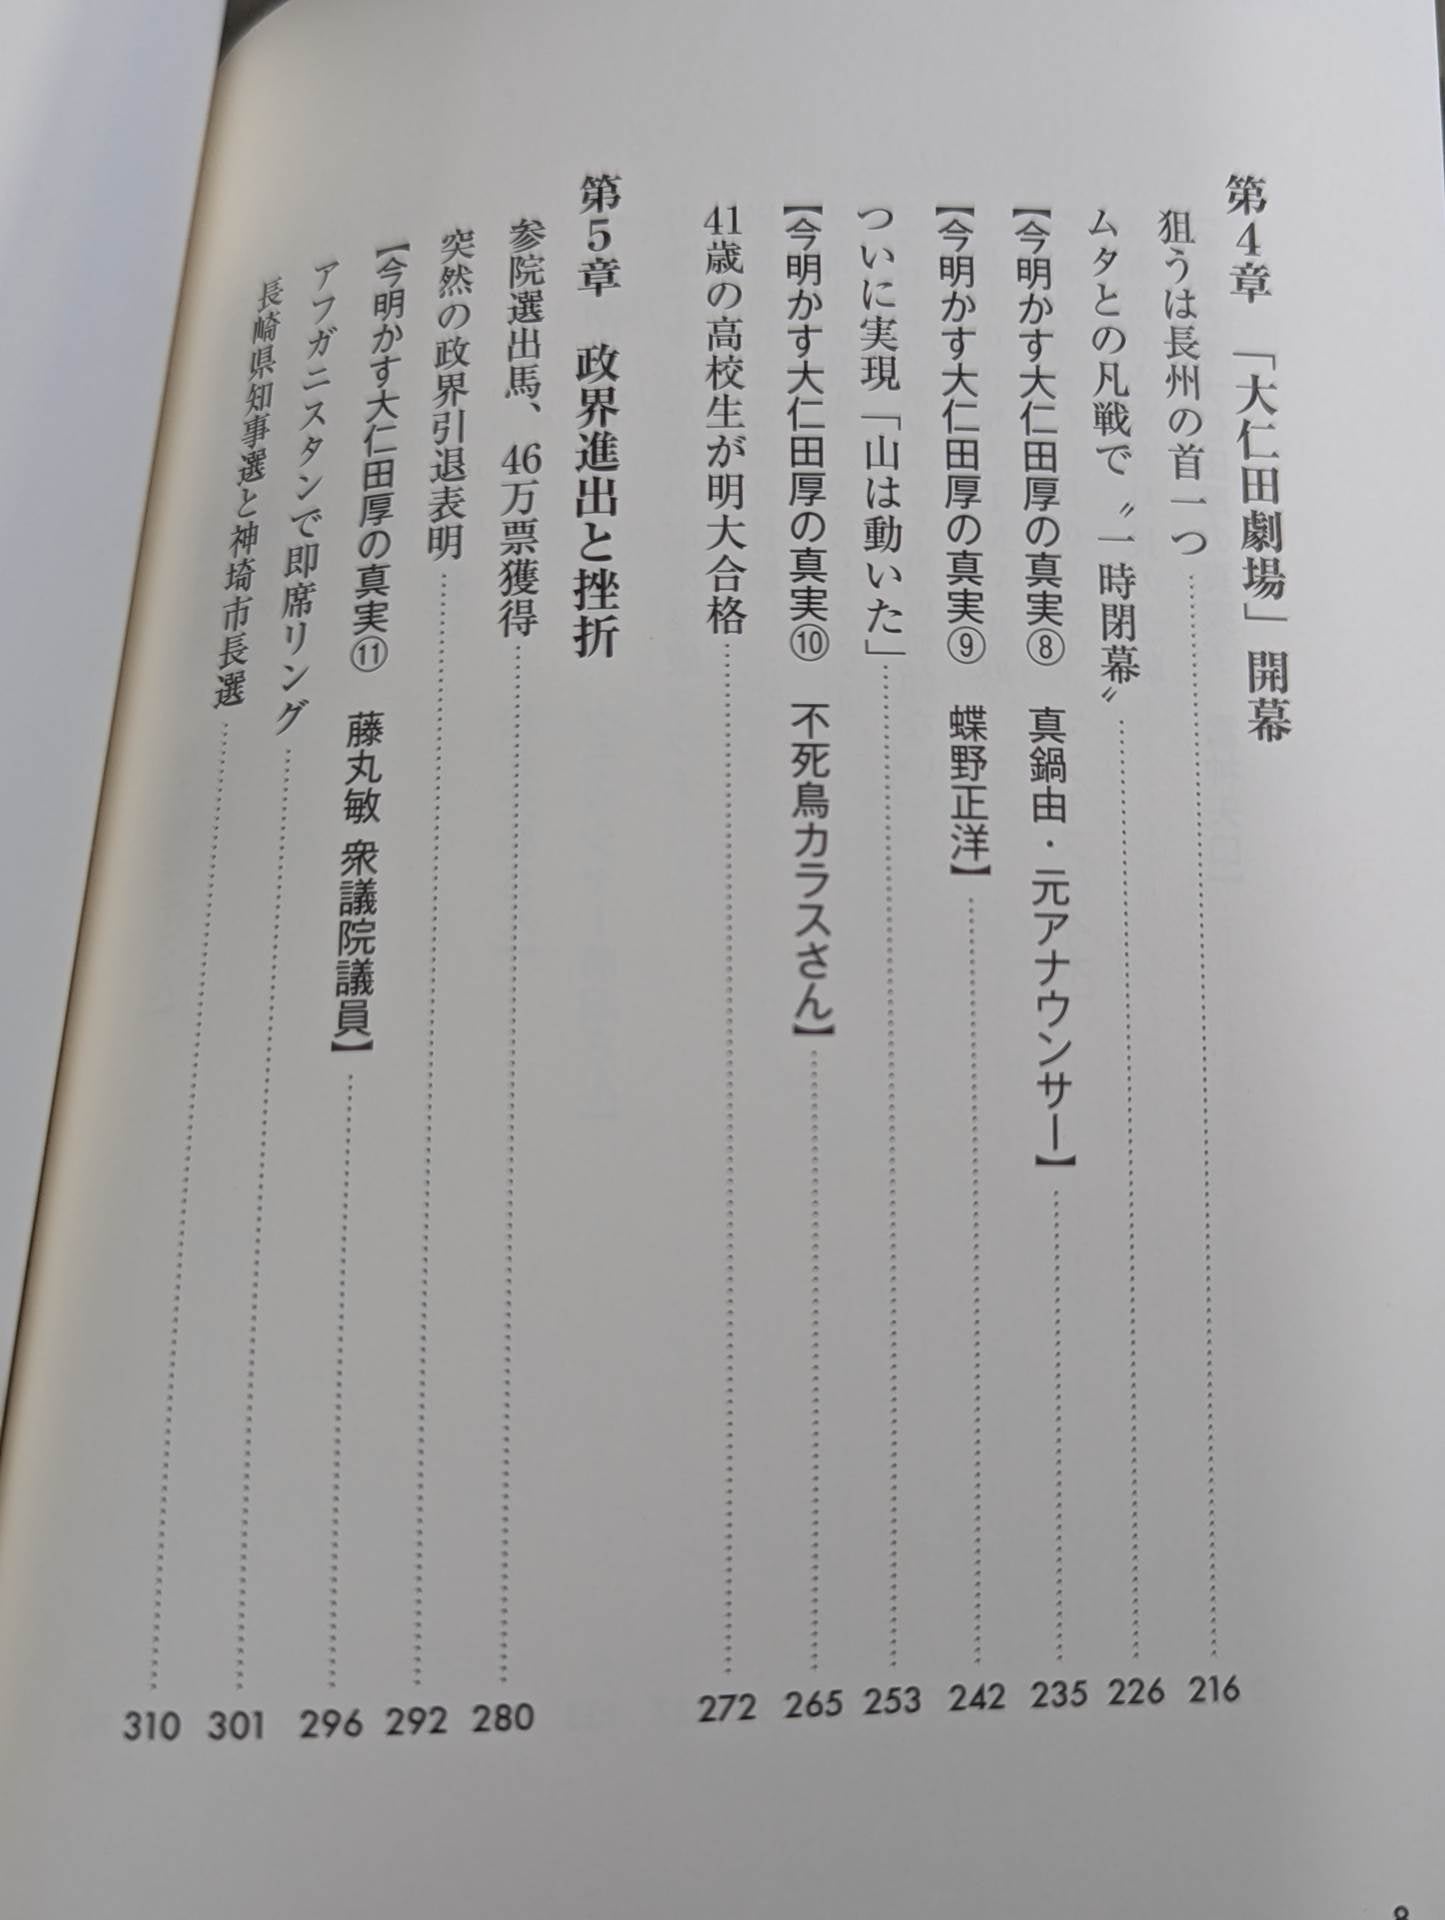 第4章　「大仁田劇場」開幕
狙うは長州の首一つ……216
ムタとの凡戦で〝一時閉幕〟……226
【今明かす大仁田厚の真実⑧　真鍋由・元アナウンサー】……235
【今明かす大仁田厚の真実⑨　蝶野正洋】……242
ついに実現「山は動いた」……253
【今明かす大仁田厚の真実⑩　不死鳥カラスさん】……265
41歳の高校生が明大合格……272
第5章　政界進出と挫折
参院選出馬、46万票獲得……280
突然の政界引退表明……292
【今明かす大仁田厚の真実⑪　藤丸敏 衆議院議員】……296
アフガニスタンで即席リング……301
長崎県知事選と神埼市長選……310
8